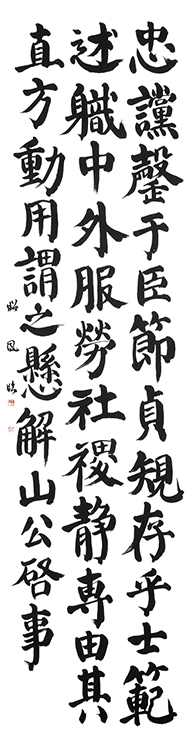 忠讜罄于臣節貞䂓存乎士範
述軄中外服勞社禝静專由其
直方動用謂之懸解山公啓事